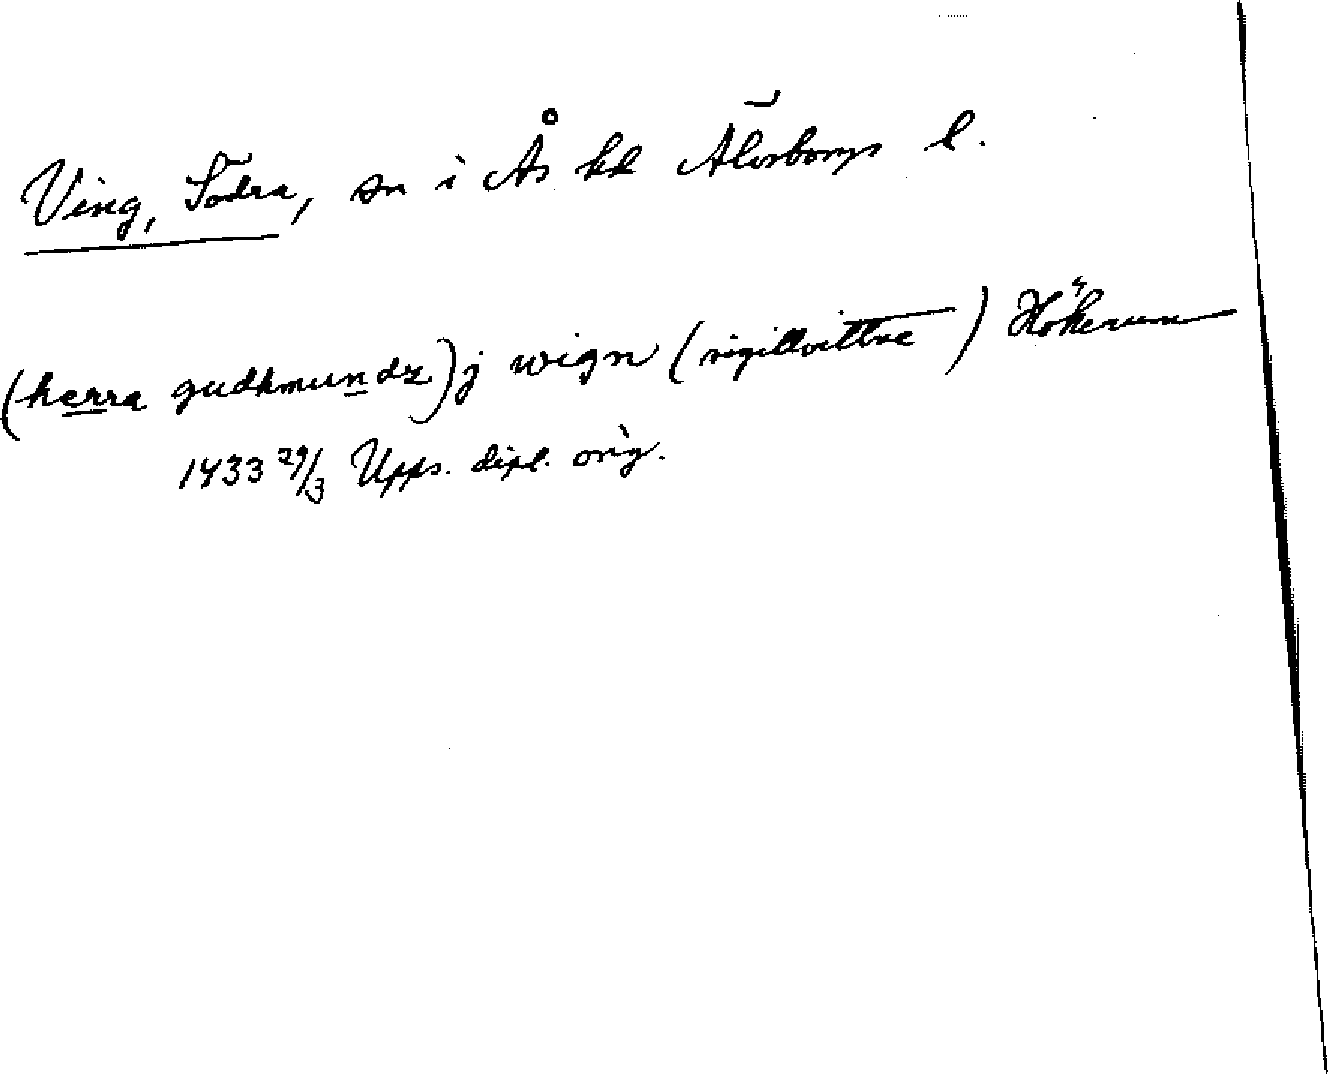 Ving, Södra, sn i Ås hd Älvsborgs l.
(herra gudhmundz) j wign (sigillvittne) Hökerum
1433 29/3 Upps. dipl. orig.